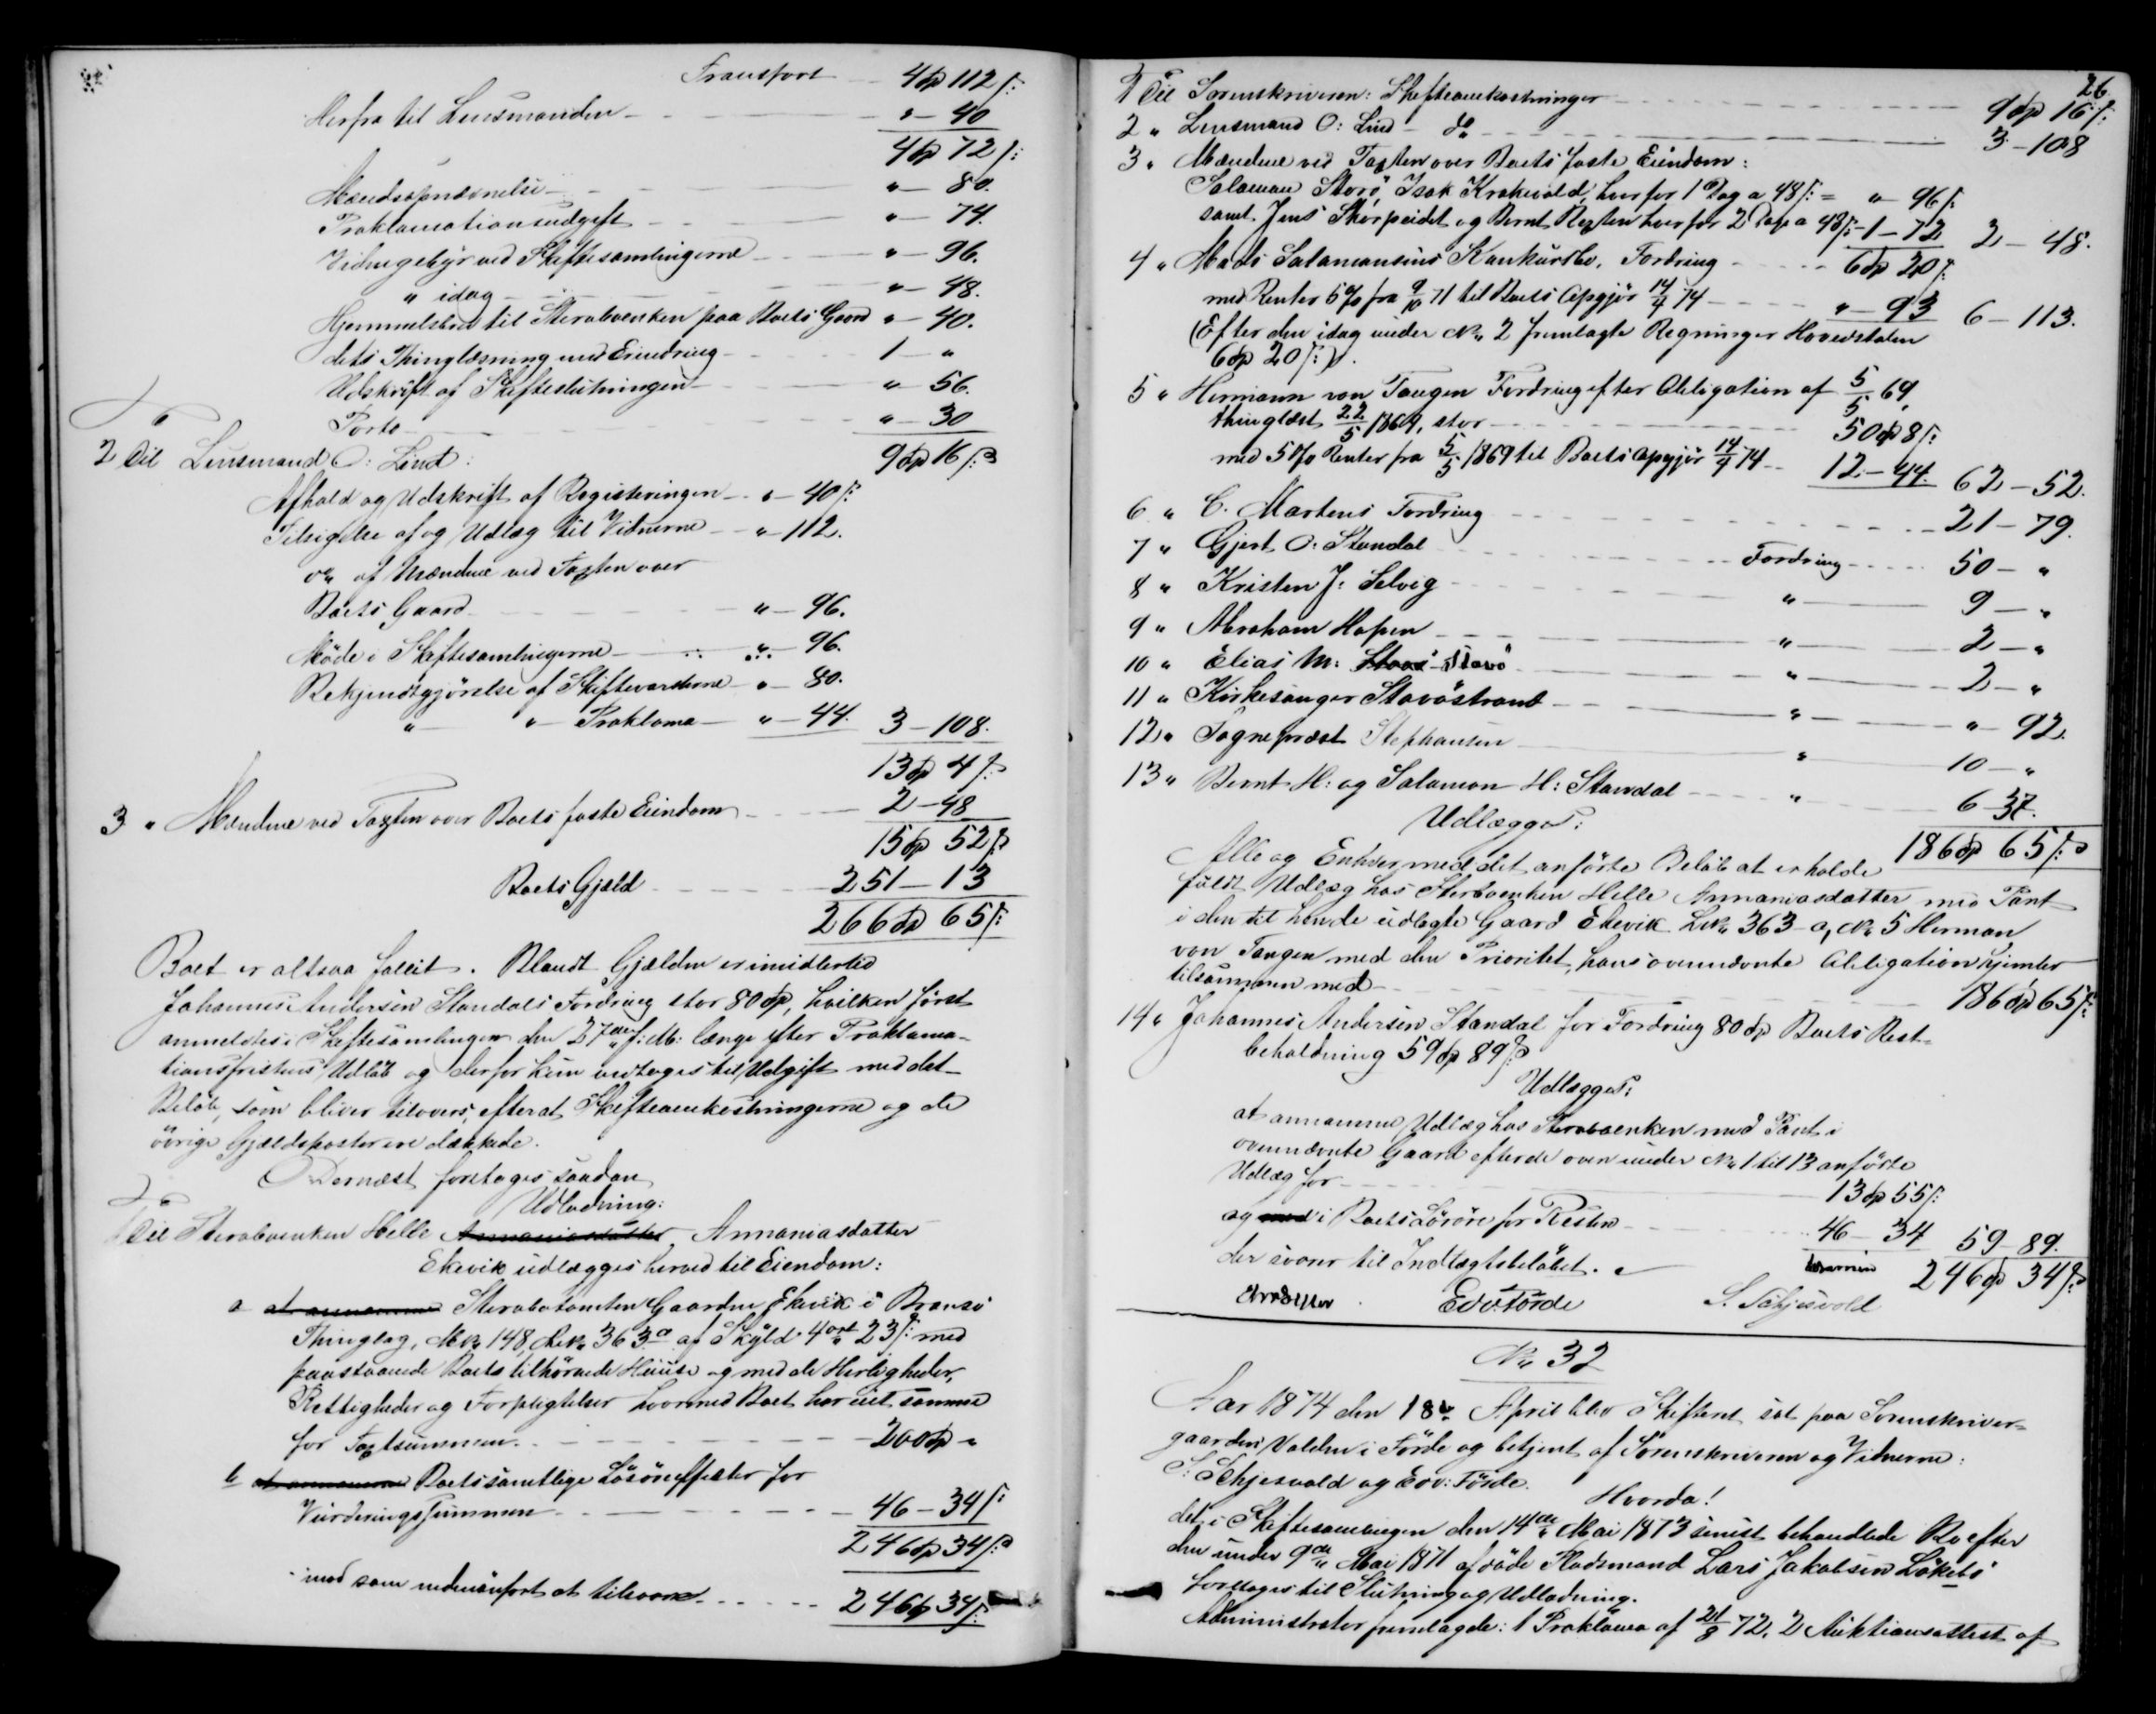 Transport 4 dp 112 s:
Herfra til Lensmanden " - 40
4 dp 72 s:
Mændsopnævnelse " - 80.
Proklamationsudgift " - 74.
Vidnegebyr ved Skiftesamlingerne " - 96.
" idag " - 48.
Hjemmelsbrev til Stervboenken paa Boets Gaard " - 40.
dets Thinglæsning med Erindring 1 - "
Udskrift af Skifteslutningen " - 56.
Porto " - 30
2 Til Lensmand O: Lind: 9 dp 16 s:
Afhold og Udskrift af Registeringen " - 40 s:
Tilsigelse af og Udlæg til Vidnerne " - 112.
do af Mændene ved Taxten over
Boets Gaard " - 96.
Møde i Skiftesamlingerne " - 96.
Bekjendtgjørelse af Skiftevarslerne " - 80.
" " Proklama " - 44. 3 - 108.
13 dp 4 s:
3 " Mændene ved Taxten over Boets faste Eiendom 2 - 48
15 dp 52 s
Boets Gjæld 251 - 13
266 dp 65 s:
Boet er altsaa fallit. Blandt Gjælden er imidlertid
Johannes Andersen Standals Fordring stor 80 dp, hvilken først
anmeldtes i Skiftesamlingen den 27de f: M: længe efter Proklama-
tionsfristens Udløb og derfor kun medtages til Udgift med det
Beløb, som bliver tilovers, efterat Skifteomkostningerne og de
øvrige Gjældsposter ere dækkede.
Dernæst foretages saadan
Udlodning:
1 Til Stervboenken Helle Annaniasdatter Annaniasdatter
Ekevik udlægges herved til Eiendom:
a at annamme Stervbotomten Gaarden Ekevik i Bransø
Thinglag, MNo 148, LNo 363 a af Skyld 4 ort 23 s: med
paastaaende Boets tilhørende Huuse og med de Herligheder,
Rettigheder og Forpligtelser hvormed Boet har eiet samme
for Taxtsummen 200 dp "
b at annamme Boets samtlige Løsøreffekter for
Vurderingssummen 46 - 34 s:
246 dp 34 s:
mod som nedenanført at tilsvare 246 dp 34 s:
26.
1 Til Sorenskriveren: Skifteomkostninger 9 dp 16 s:
2 " Lensmand O: Lind do 3 - 108
3 " Mændene ved Taxten over Boets faste Eiendom:
Salamon Storø, Isak Krakevold, hver for 1 Dag a 48 s: = " - 96 s:
samt Jens Skorpeidet og Bernt Rexten hver for 2 Dage a 48 s: - 1 - 72 2 - 48.
4 " Mads Salamonsens Konkursbo, Fordring 6 dp 20 s:
med Renter 5 % fra 9/10 71 til Boets Opgjør 14/4 74 " - 93 6 - 113.
(Efter den idag under No 2 fremlagte Regninger Hovedstolen
6 dp 20 s:).
5 " Hermann von Tangen Fordring efter Obligation af 5/5 69,
thinglæst 22/5 1869, stor 50 dp 8 s:
med 5 % Renter fra 5/5 1869 til Boets Opgjør 14/4 74 12 - 44. 62 - 52.
6 " C. Martens Fordring 21 - 79.
7 " Gjert O: Standal Fordring 50 - "
8 " Kristen J: Selvig " 9 - "
9 " Abraham Hopen " 2 - "
10 " Elias M: Stavø " 2 - "
11 " Kirkesanger Stavøstrand " " - 92.
12 " Sognepræst Stephansen " 10 - "
13 " Bernt H: og Salamon H: Standal " 6 - 37.
Udlægges: 186 dp 65 s:
Alle og Enhver med det anførte Beløb at erholde
fuldt Udlæg hos Stervboenken Helle Annaniasdatter med Pant
i den til hende udlagte Gaard Ekevik LNo 363 a, No 5 Herman
von Tangen med den Prioritet, hans ovennævnte Obligation hjemler
tilsammen med 186 dp 65 s:
14 " Johannes Andersen Standal for Fordring 80 dp Boets Rest-
beholdning 59 dp 89 s
Udlægges:
at annamme Udlæg hos Stervboenken med Pant i
ovennævnte Gaard efter de oven under No 1 til 13 anførte
Udlæg for 13 dp 55 s:
og med i Boets Løsøre for Resten 46 - 34 59 - 89.
der svarer til Indtægtsbeløbet. 246 dp 34 s:
Edv. Førde S. Schjesvold
No 32
Aar 1874 den 18de April blev Skifteret sat paa Sorenskriver-
gaarden Valden i Førde og betjent af Sorenskriveren og Vidnerne:
S: Schjesvold og Edv: Førde.
Hvorda!
det i Skiftesamlingen den 14de Mai 1873 senest behandlede Bo efter
den under 9de Mai 1871 afdøde Pladsmand Lars Jakobsen Løkebø
foretoges til Slutning og Udlodning.
Administrator fremlagde: 1 Proklama af 21/8 72, 2 Auktionsattest af